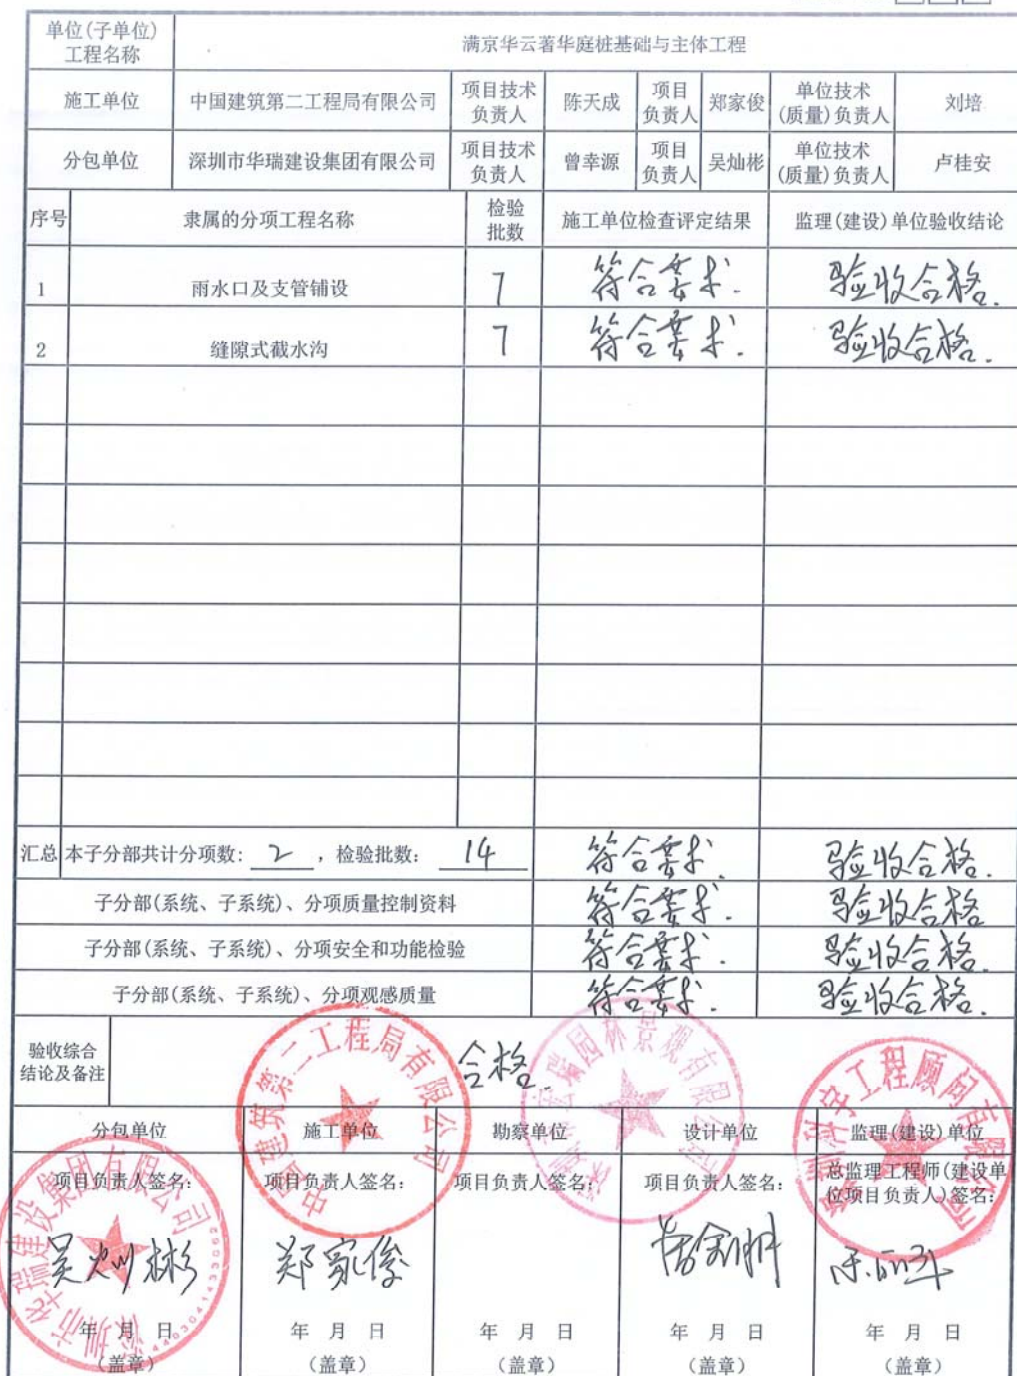 单位(子单位)
工程名称
满京华云著华庭桩基础与主体工程
施工单位
中国建筑第二工程局有限公司
项目技术
负责人
陈天成
项目
负责人
郑家俊
单位技术
(质量)负责人
刘培
分包单位
深圳市华瑞建设集团有限公司
项目技术
负责人
曾幸源
项目
负责人
吴灿彬
单位技术
(质量)负责人
卢桂安
序号
隶属的分项工程名称
检验
批数
施工单位检查评定结果
监理(建设)单位验收结论
1
雨水口及支管铺设
7
符合要求.
验收合格.
2
缝隙式截水沟
7
符合要求.
验收合格.
汇总
本子分部共计分项数: 2 ，检验批数: 14
符合要求
验收合格.
子分部(系统、子系统)、分项质量控制资料
符合要求.
验收合格
子分部(系统、子系统)、分项安全和功能检验
符合要求.
验收合格.
子分部(系统、子系统)、分项观感质量
符合要求.
验收合格.
验收综合
结论及备注
合格.
分包单位
施工单位
勘察单位
设计单位
监理(建设)单位
项目负责人签名:
项目负责人签名:
项目负责人签名:
项目负责人签名:
总监理工程师(建设单
位项目负责人)签名:
吴灿彬
郑家俊
年 月 日
年 月 日
年 月 日
年 月 日
年 月 日
(盖章)
(盖章)
(盖章)
(盖章)
(盖章)
深圳市华瑞建设集团有限公司
中国建筑第二工程局有限公司